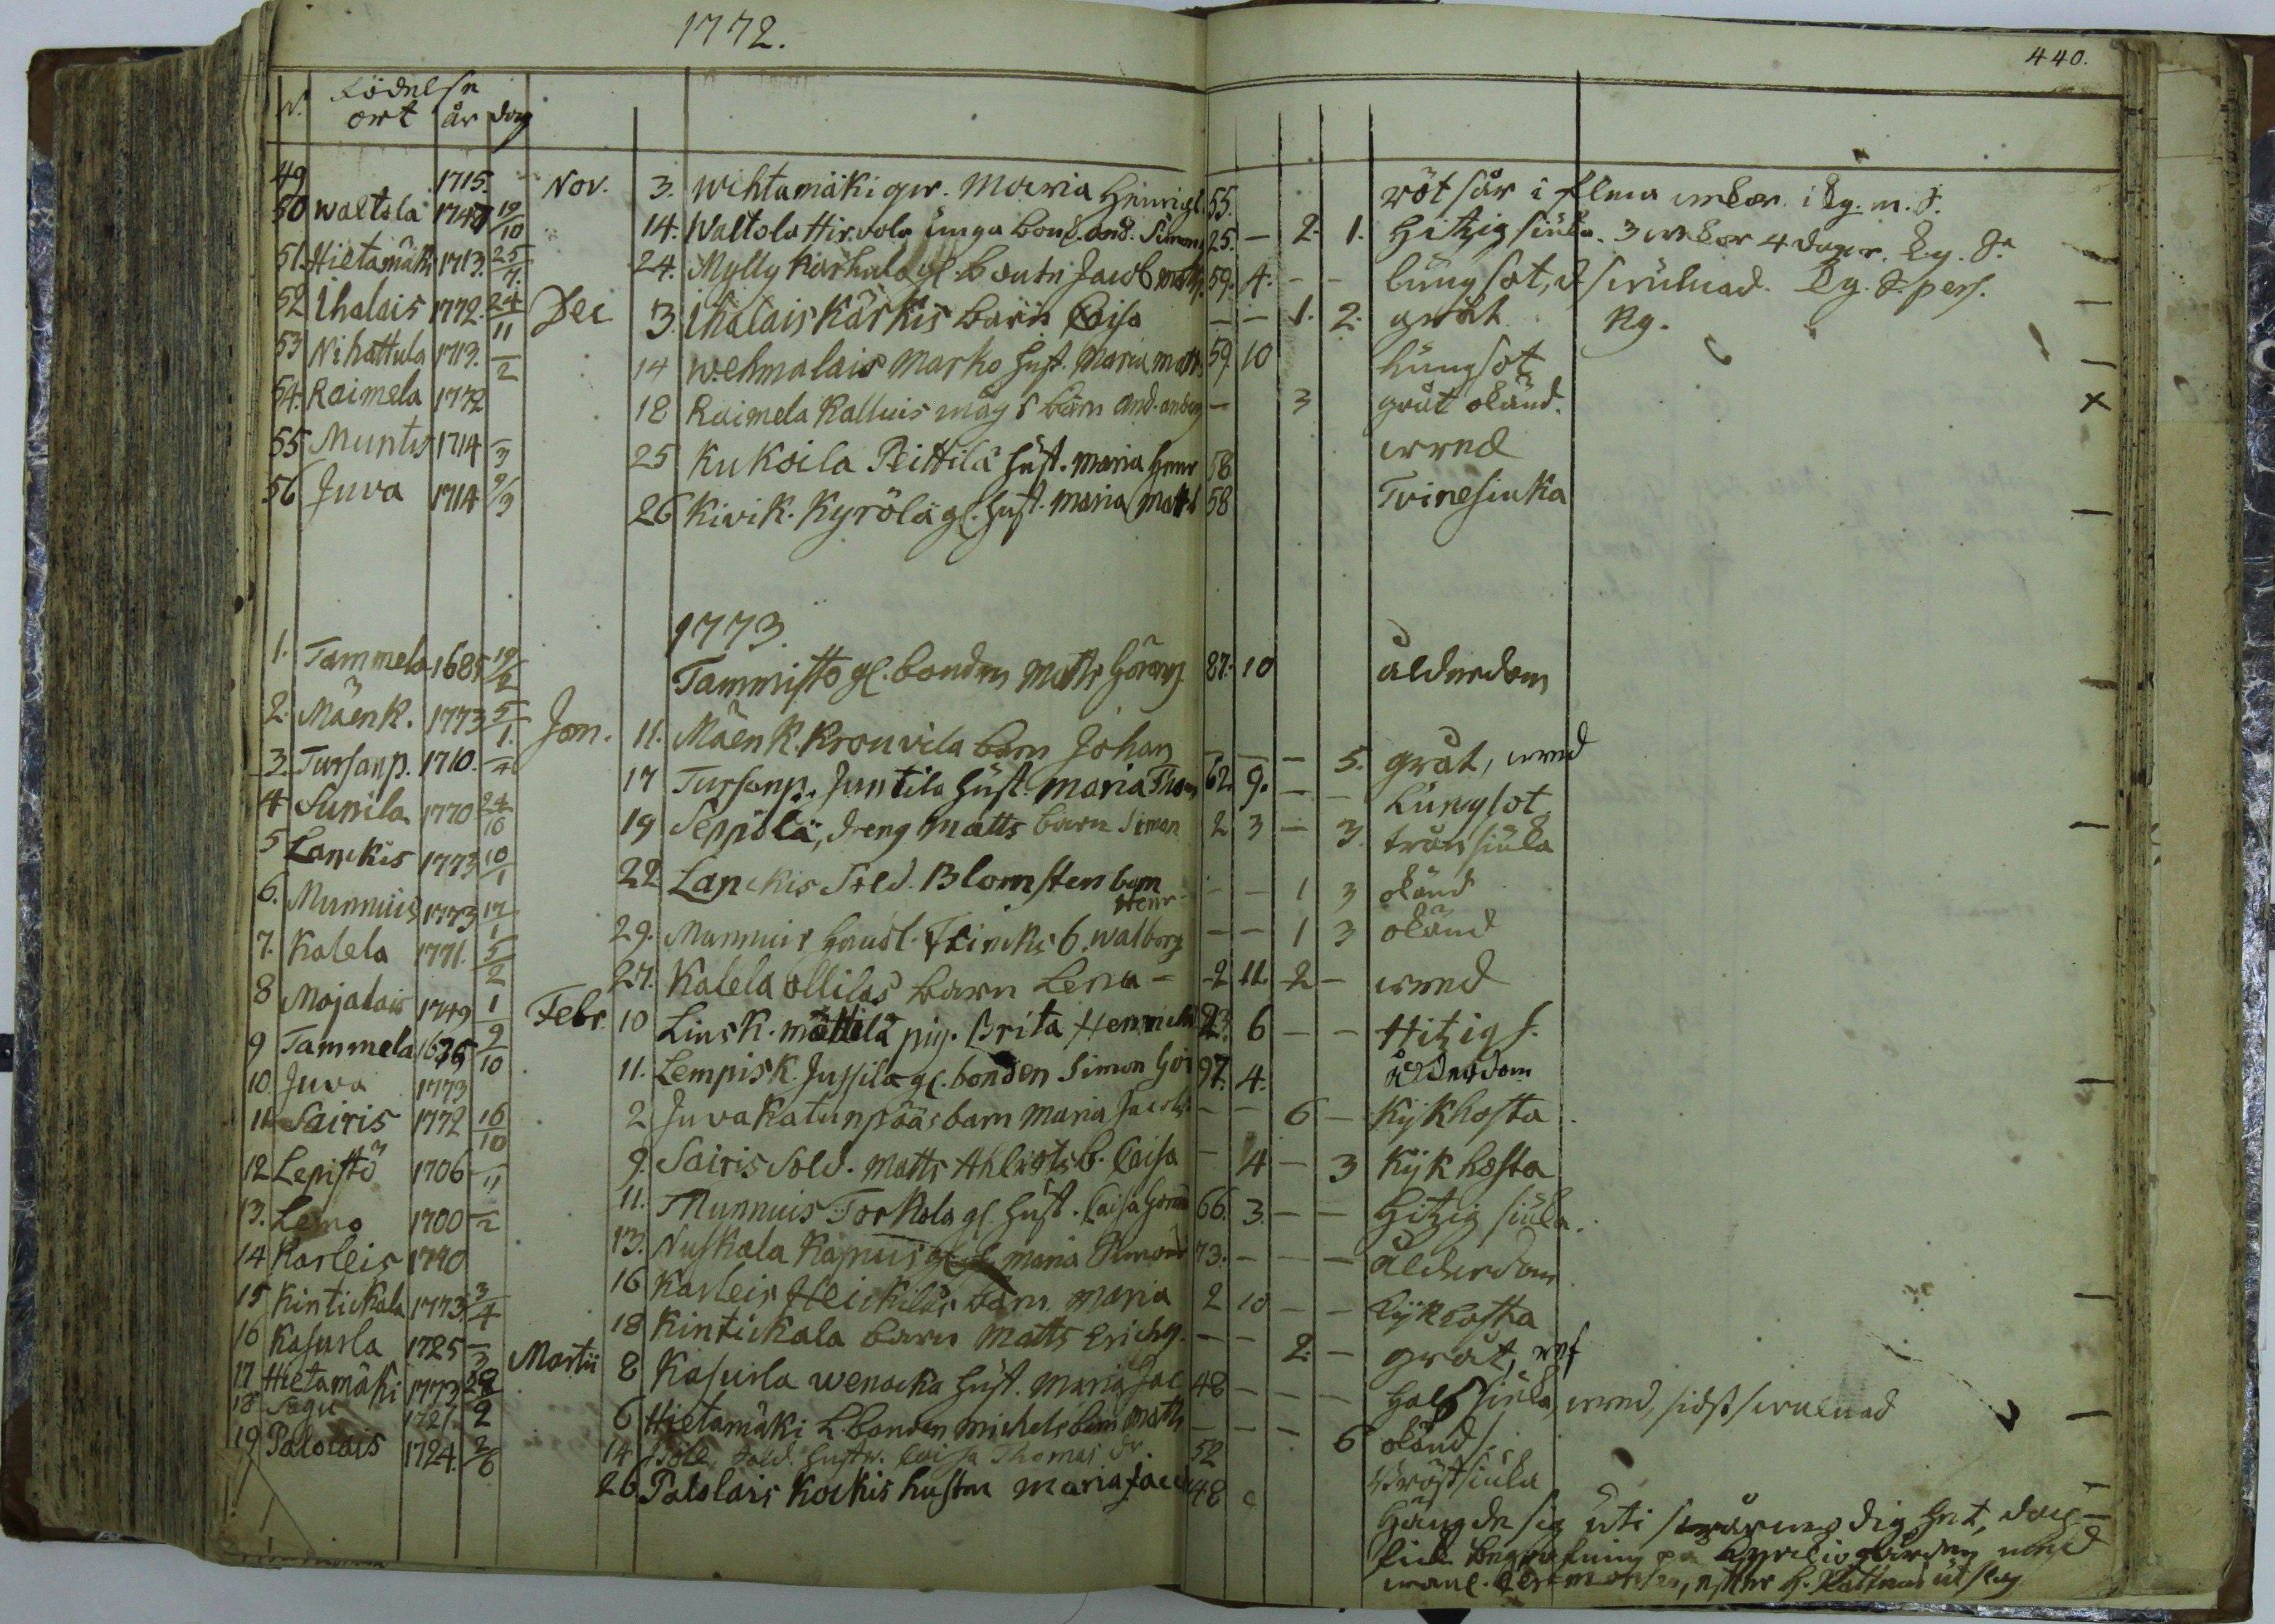 1772.
440.
N. Födelse
ort år dag
49 1715. Nov. 3. Wihtamäki gw. Maria Heinrigl. 55. rötsår i flera weckor. i Ky. n. J.
50 Waltola 1747 19/10 14. Waltola Hirvola unga bond. And. Simons 25. — 2. 1. Hitzig siuka. 3 weckor 4 dagar. Ky.
51. Hietamäki 1713. 25/7. 24. Mylly Karhula gl. bonde Jacob Matts. 59. 4. — — lungsot, swulnad. Ky.
52 Ihalais 1772. 24/11 Dec 3. Ihalais Kärkis barn Caisa — — 1. 2. gråt. Ky.
53 Nihattula 1713. —/2 14 Wehmalais Marko hust. Maria Matts. 59. 10 Lungsot
54. Raimela 1772 18 Raimela Kalluis mågs barn And. Anders — 3 gråt okänd. x
55 Muntis 1714 —/3 25 Kukoila Peittilä hust. Maria Henr 58 wred
56 Juva 1714 9/3 26 Kivik. Kyrölä gl. hust. Maria Matts 58 Trinesiuka
1773.
1. Tammela 1685 19/2 Tammisto gl. bonden Matts Görans 87. 10 ålderdom
2. Mäenk. 1773 5/1. Jan. 11. Mäenk. Krouvila barn Johan — — — 5. gråt, wred
3. Tursanp. 1710. —/4 17 Tursanp. Juntila hust. Maria Thom 62. 9. — — Lungsot
4 Sunila 1770 24/10 19 Seppälä, dreng Matts barn Simon 2 3 — 3. trånsiuka
5 Lanckis 1773 10/1 22 Lanckis Sold. Blomsten barn Henr — — 1 3 okänd
6. Munnuis 1773 17/1 29. Munnuis Flincks b. Walborg — — 1 3 okänd
7. Kalela 1771. 5/2 27. Kalela Ollilas barn Lena — 2 11. 2 — wred
8 Majalais 1749 1 Febr. 10 Linsk. Mättilä pig. Brita Henrichs 23. 6 — — Hitzig s.
9 Tammela 1675 9/10 11. Lempisk. Jussila gl. bonden Simon Gör 97. 4. ålderdom
10. Juva 1773 2 Juva Katunpääs barn Maria Jacobs. — — 6 — Kykhosta.
11. Sairis 1772 16/10 9. Sairis Sold. Matts Ahlrots b. Caisa — 4 — 3 Kykhosta
12 Lepistö 1706 —/11 11. Munnuis Torkola gl. hust. Caisa 66. 3. — — Hitzig siuka.
13. Lemo 1700 —/2 13. Nuskala Kapuis gl. h. Maria Simons 73. — — — ålderdom
14 Karleis 1770 16 Karleis Heickiläs barn Maria 2 10 — — Kykhosta
15 Kintickala 1773 3/4 18 Kintickala barn Matts Erichs. — — 2. — gråt,
16 Kasurla 1725 —/3 Martii 8 Kasurla Wenacka hust. Maria Jac 48 — — — Hals siuka, wred, sidst swulnad
17 Hietamäki 1773 28/2 6 Hietamäki L. bonden Michels barn Matts — — — 6 okänd
18 1721. 14 Sold. hustr. Caisa Thomas dr. 52 Bröstsiuka
19 Palolais 1724. 2/6 26 Palolais Kockis hustru Maria Jacobs 48 Hängde sig uti swårmodighet, dock
fick begrafning på Kyrkiogården med
wanl. Ceremonier, efter H. Rättens utslag